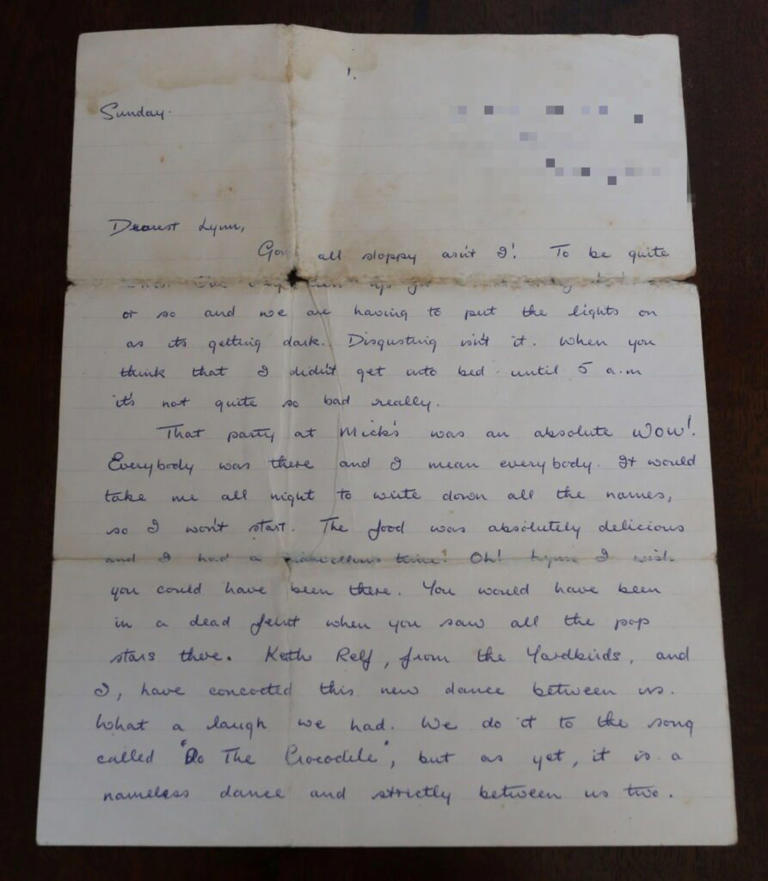 1.
Sunday.
Dearest Lynn,
Gone all sloppy aisn't I! To be quite
or so and we are having to put the lights on
as its getting dark. Disgusting isn't it. When you
think that I didn't get into bed until 5 a.m
it's not quite so bad really.
That party at Mick's was an absolute WOW!
Everybody was there and I mean everybody. It would
take me all night to write down all the names,
so I won't start. The food was absolutely delicious
and I had a marvellous time! Oh! Lynn I wish
you could have been there. You would have been
in a dead feint when you saw all the pop
stars there. Keith Relf, from the Yardbirds, and
I, have concocted this new dance between us.
What a laugh we had. We do it to the song
called "Do The Crocodile", but as yet, it is a
nameless dance and strictly between us two.